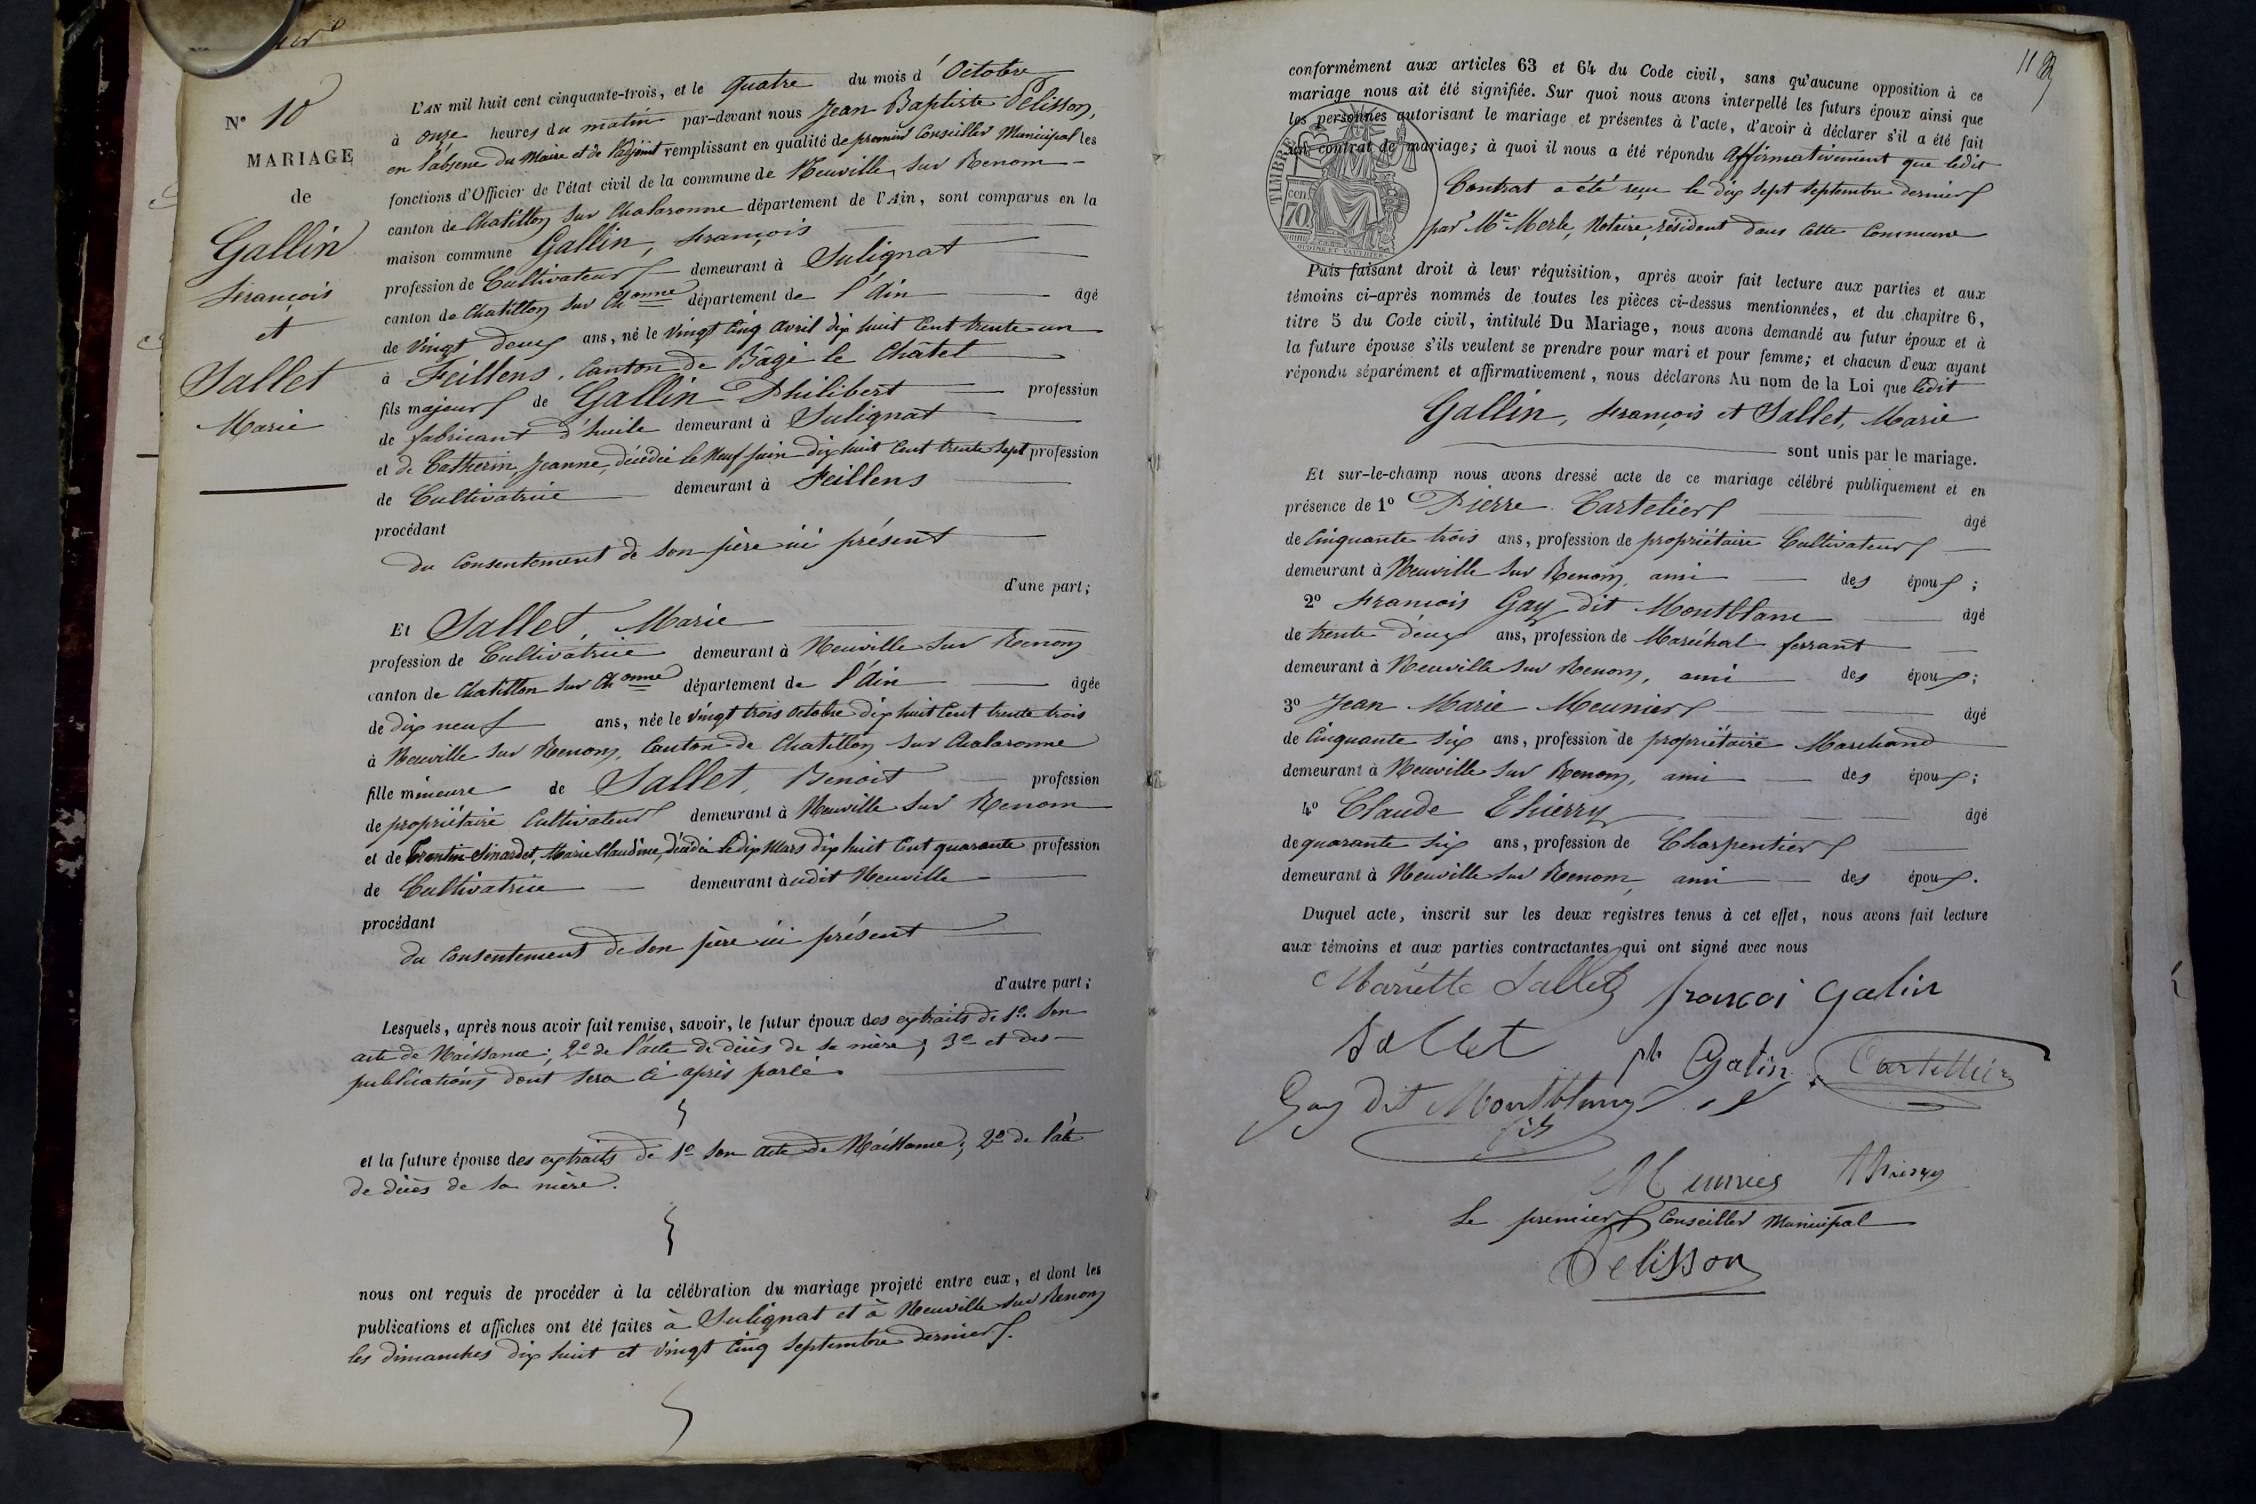 N° 10
MARIAGE
de
Gallin
François
et
Sallet
Marie
L'AN mil huit cent cinquante-trois, et le quatre du mois d'Octobre
à onze heures du matin par-devant nous Jean Baptiste Pelisson,
en l'absence du Maire et de l'adjoint remplissant en qualité de premier Conseiller Municipal les
fonctions d'Officier de l'état civil de la commune de Neuville sur Renom
canton de Chatillon sur Chalaronne département de l'Ain, sont comparus en la
maison commune Gallin, François
profession de Cultivateur demeurant à Sulignat
canton de Chatillon sur Chonne département de l'Ain âgé
de vingt deux ans, né le vingt cinq avril dix huit cent trente un
à Feillens, Canton de Bâgé le Châtel
fils majeur de Gallin Philibert profession
de fabricant d'huile demeurant à Sulignat
et de Catherin, Jeanne, décédée le neuf juin dix huit cent trente sept profession
de Cultivatrice demeurant à Feillens
procédant
du consentement de son père ici présent
d'une part;
Et Sallet, Marie
profession de Cultivatrice demeurant à Neuville sur Renom
canton de Chatillon sur Chonne département de l'Ain âgée
de dix neuf ans, née le vingt trois octobre dix huit cent trente trois
à Neuville sur Renom, Canton de Chatillon sur Chalaronne
fille mineure de Sallet, Benoit profession
de propriétaire cultivateur demeurant à Neuville sur Renom
et de Marie Claudine, décédée le dix Mars dix huit cent quarante profession
de Cultivatrice demeurant à udit Neuville
procédant
du consentement de son père ici présent
d'autre part;
Lesquels, après nous avoir fait remise, savoir, le futur époux des extraits de 1° son
acte de Naissance; 2° de l'acte de décès de sa mère; 3° et des
publications dont sera ci après parlé.
et la future épouse des extraits de 1° son acte de Naissance; 2° de l'acte
de décès de sa mère.
nous ont requis de procéder à la célébration du mariage projeté entre eux, et dont les
publications et affiches ont été faites à Sulignat et à Neuville sur Renom
les dimanches dix huit et vingt cinq Septembre dernier.
conformément aux articles 63 et 64 du Code civil, sans qu'aucune opposition à ce
mariage nous ait été signifiée. Sur quoi nous avons interpellé les futurs époux ainsi que
les personnes autorisant le mariage et présentes à l'acte, d'avoir à déclarer s'il a été fait
un contrat de mariage; à quoi il nous a été répondu affirmativement que ledit
Contrat a été reçu le dix sept Septembre dernier
par Me Merle, Notaire, résident dans cette Commune
TIMBRE
70
Puis faisant droit à leur réquisition, après avoir fait lecture aux parties et aux
témoins ci-après nommés de toutes les pièces ci-dessus mentionnées, et du chapitre 6,
titre 5 du Code civil, intitulé Du Mariage, nous avons demandé au futur époux et à
la future épouse s'ils veulent se prendre pour mari et pour femme; et chacun d'eux ayant
répondu séparément et affirmativement, nous déclarons Au nom de la Loi que ledit
Gallin, François et Sallet, Marie
sont unis par le mariage.
Et sur-le-champ nous avons dressé acte de ce mariage célébré publiquement et en
présence de 1° Pierre Cartelier âgé
de cinquante trois ans, profession de propriétaire Cultivateur
demeurant à Neuville sur Renom, ami des époux;
2° François Gay dit Montblanc âgé
de trente deux ans, profession de Maréchal ferrant
demeurant à Neuville sur Renom, ami des époux;
3° Jean Marie Meunier âgé
de cinquante six ans, profession de propriétaire Marchand
demeurant à Neuville sur Renom, ami des époux;
4° Claude Thierry âgé
de quarante six ans, profession de Charpentier
demeurant à Neuville sur Renom, ami des époux.
Duquel acte, inscrit sur les deux registres tenus à cet effet, nous avons fait lecture
aux témoins et aux parties contractantes qui ont signé avec nous
Mariette Sallet françoi galin
Sallet ph Galin Cartellier
Gay dit Montblanc
fils
Meunier Thierry
Le premier Conseiller Municipal
Pelisson